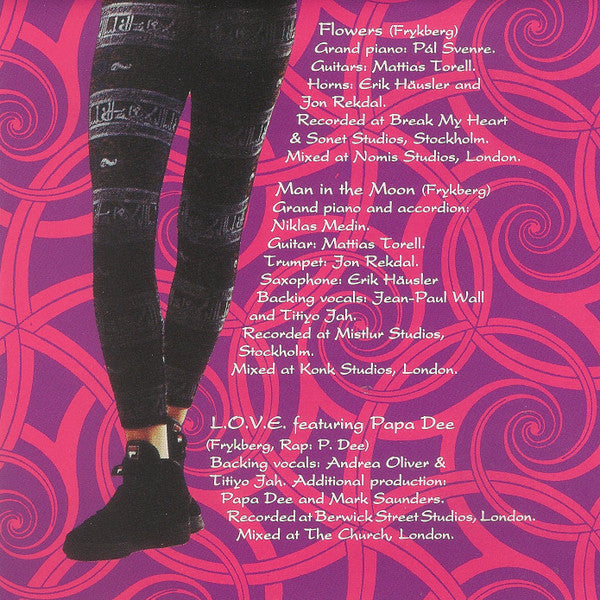 Flowers (Frykberg)
Grand piano: Pál Svenre.
Guitars: Mattias Torell.
Horns: Erik Häusler and
Jon Rekdal.
Recorded at Break My Heart
& Sonet Studios, Stockholm.
Mixed at Nomis Studios, London.
Man in the Moon (Frykberg)
Grand piano and accordion:
Niklas Medin.
Guitar: Mattias Torell.
Trumpet: Jon Rekdal.
Saxophone: Erik Häusler
Backing vocals: Jean-Paul Wall
and Titiyo Jah.
Recorded at Mistlur Studios,
Stockholm.
Mixed at Konk Studios, London.
L.O.V.E. featuring Papa Dee
(Frykberg, Rap: P. Dee)
Backing vocals: Andrea Oliver &
Titiyo Jah. Additional production:
Papa Dee and Mark Saunders.
Recorded at Berwick Street Studios, London.
Mixed at The Church, London.